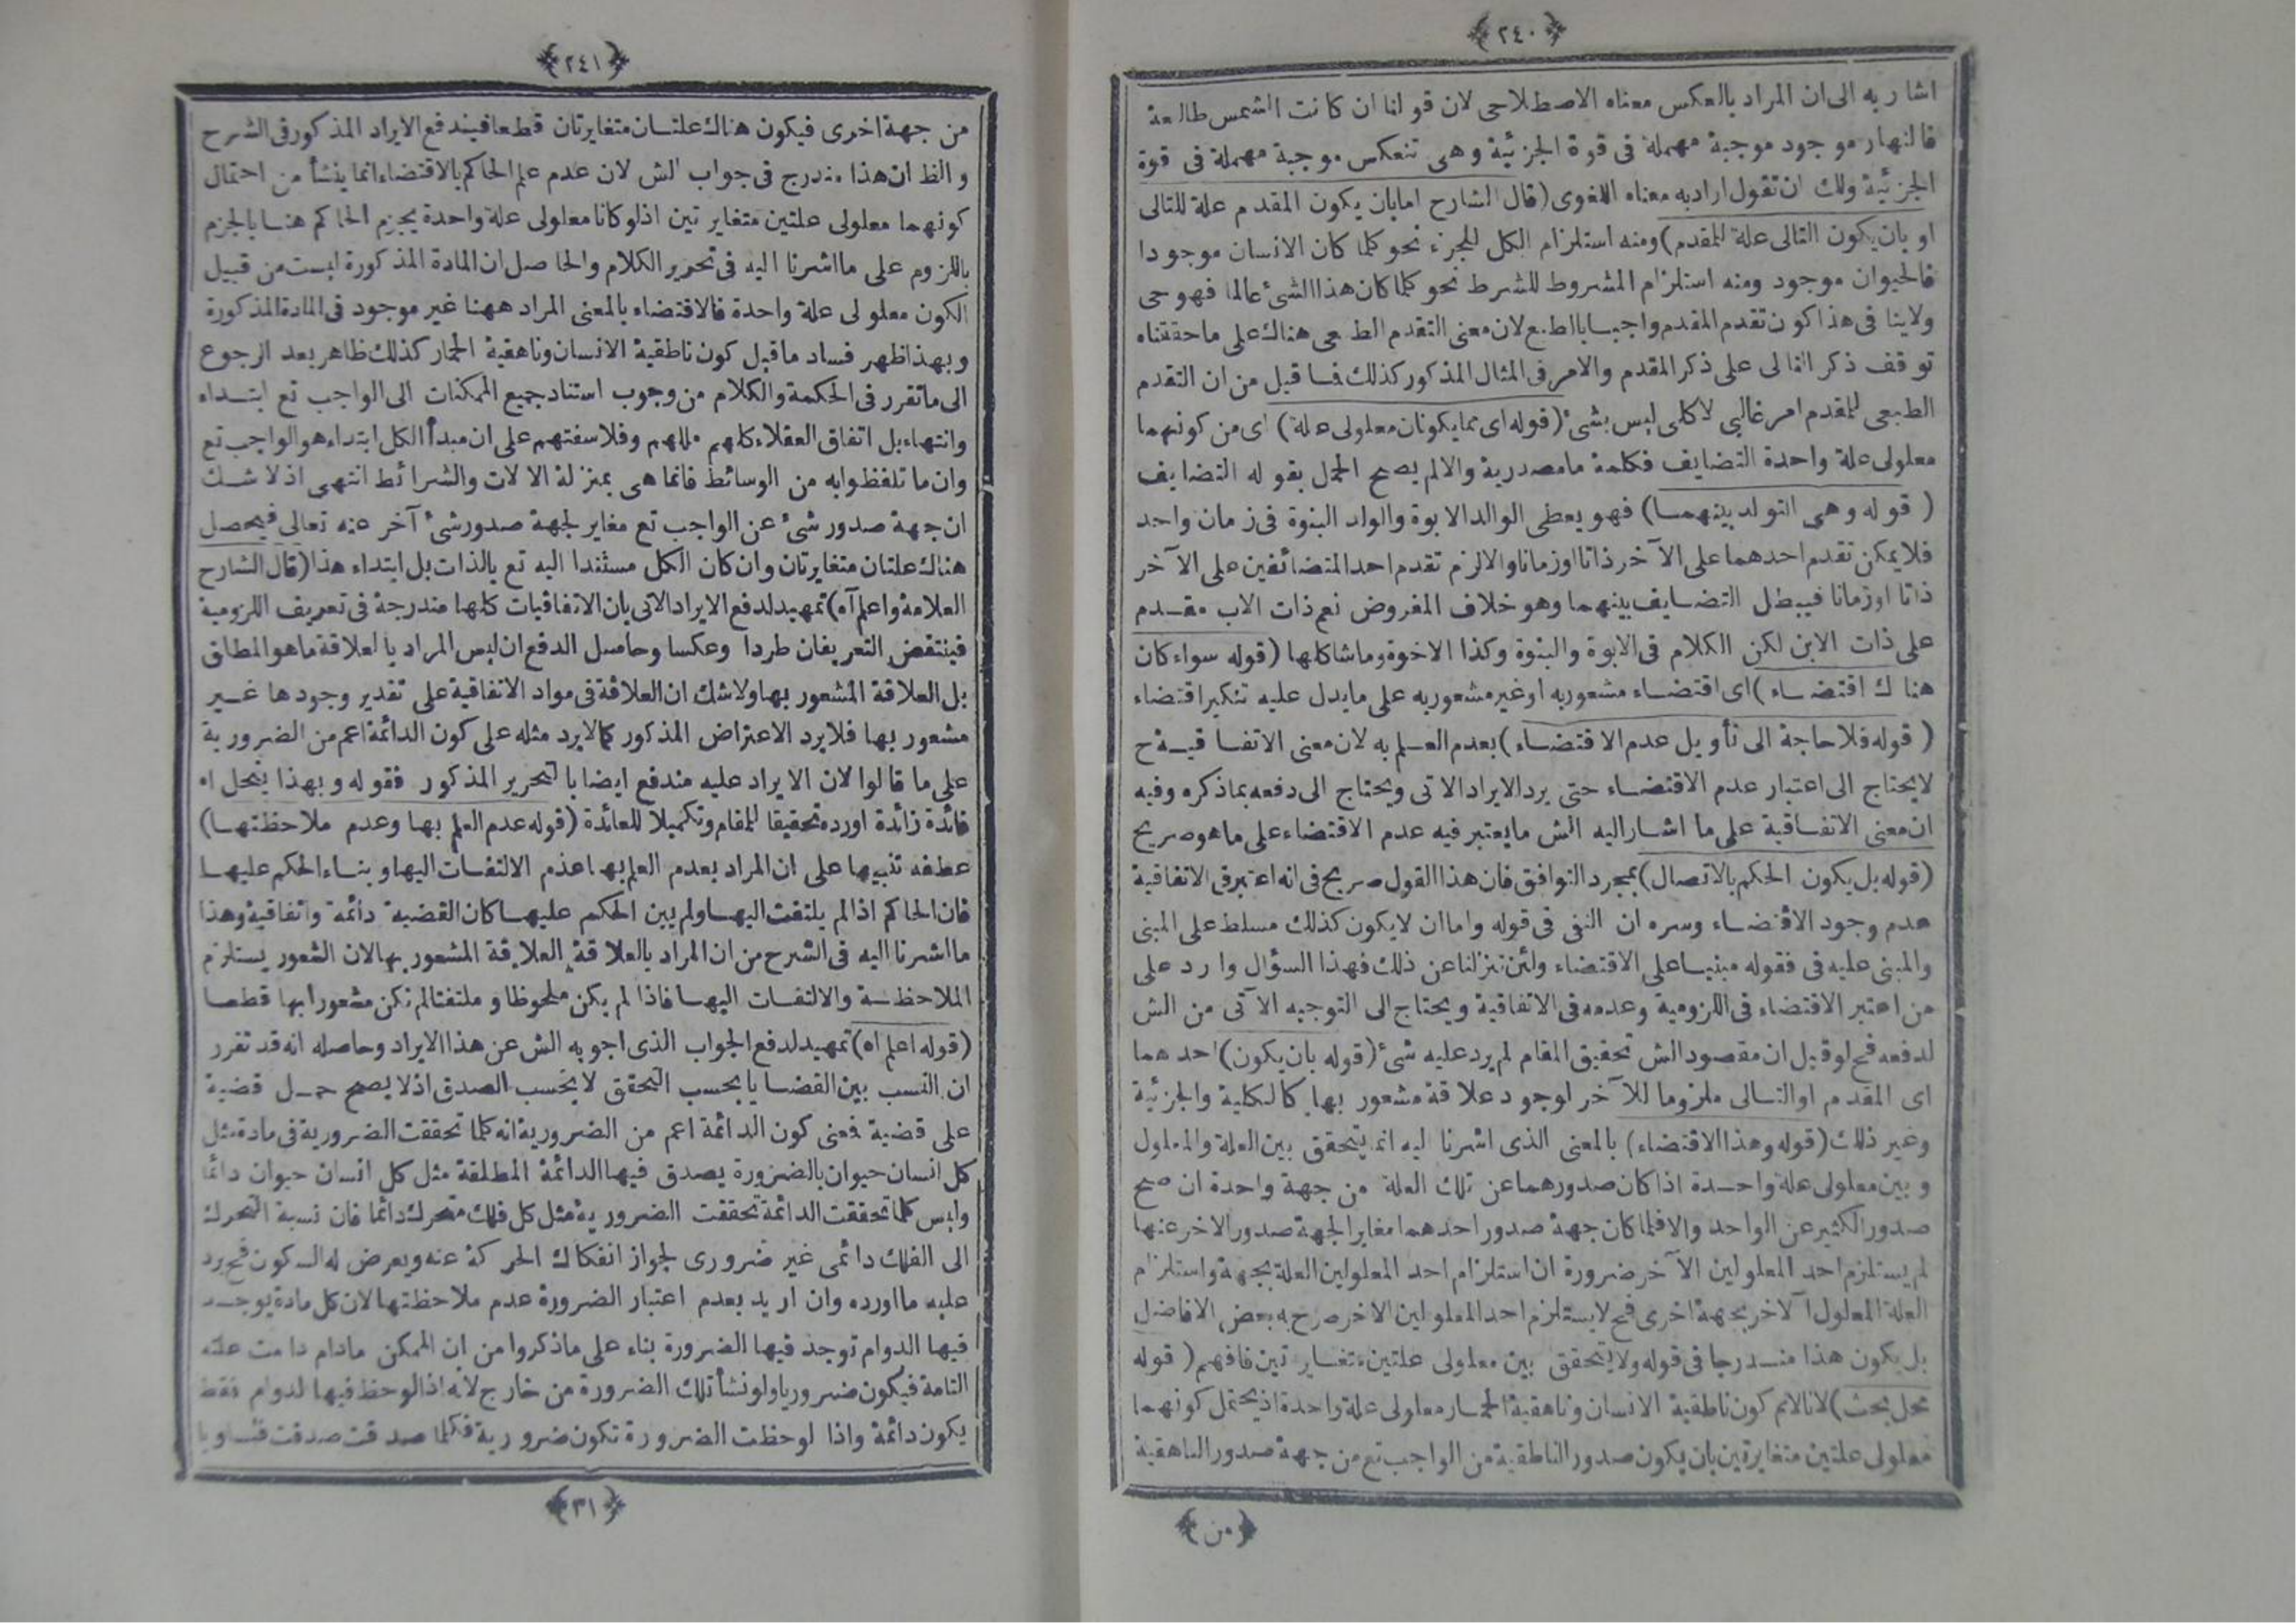 ﴿٢٤٠﴾
اشار به الى ان المراد بالعكس معناه الاصطلاحى لان قولنا ان كانت الشمس طالعة
فالنهار موجود موجبة مهملة فى قوة الجزئية وهى تنعكس موجبة مهملة فى قوة
الجزئية ولك ان تقول اراد به معناه اللغوى (قال الشارح امابان يكون المقدم علة للتالى
او بان يكون التالى علة للمقدم) ومنه استلزام الكل للجزء نحو كلما كان الانسان موجودا
فالحيوان موجود ومنه استلزام المشروط للشرط نحو كلما كان هذا الشئ عالما فهو حى
ولاينافى هذا كون تقدم المقدم واجبا بالطبع لان معنى التقدم الطبعى هناك على ما حققناه
توقف ذكر التالى على ذكر المقدم والامر فى المثال المذكور كذلك فما قيل من ان التقدم
الطبعى للمقدم امر غالبى لاكلى ليس بشئ (قوله اى مما يكونان معلولى علة) اى من كونهما
معلولى علة واحدة التضايف فكلمة ما مصدرية والالم يصح الحمل بقوله التضايف
(قوله وهى التولد بينهما) فهو يعطى الوالد الابوة والولد البنوة فى زمان واحد
فلا يمكن تقدم احدهما على الآخر ذاتا اوزمانا والالزم تقدم احد المتضائفين على الآخر
ذاتا اوزمانا فيبطل التضايف بينهما وهو خلاف المفروض نعم ذات الاب مقدم
على ذات الابن لكن الكلام فى الابوة والبنوة وكذا الاخوة وما شاكلها (قوله سواء كان
هناك اقتضاء) اى اقتضاء مشعور به او غير مشعور به على ما يدل عليه تنكير اقتضاء
(قوله فلا حاجة الى تأويل عدم الاقتضاء) بعدم العلم به لان معنى الاتفاقية ح
لا يحتاج الى اعتبار عدم الاقتضاء حتى يرد الايراد الاتى ويحتاج الى دفعه بماذكره وفيه
ان معنى الاتفاقية على ما اشار اليه الش ما يعتبر فيه عدم الاقتضاء على ما هو صريح
(قوله بل يكون الحكم بالاتصال) بمجرد التوافق فان هذا القول صريح فى انه اعتبر فى الاتفاقية
عدم وجود الاقتضاء وسره ان النفى فى قوله واما ان لا يكون كذلك مسلط على المبنى
والمبنى عليه فى فقوله مبنيا على الاقتضاء ولئن تنزلنا عن ذلك فهذا السؤال وارد على
من اعتبر الاقتضاء فى اللزومية وعدمه فى الاتفاقية ويحتاج الى التوجيه الآتى من الش
لدفعه فح لوقيل ان مقصود الش تحقيق المقام لم يرد عليه شئ (قوله بان يكون) احدهما
اى المقدم او التالى ملزوما للآخر لوجود علاقة مشعور بها كالكلية والجزئية
وغير ذلك (قوله وهذا الاقتضاء) بالمعنى الذى اشرنا اليه انما يتحقق بين العلة والمعلول
وبين معلولى علة واحدة اذا كان صدورهما عن تلك العلة من جهة واحدة ان صح
صدور الكثير عن الواحد والا فلما كان جهة صدور احدهما مغاير الجهة صدور الاخر عنها
لم يستلزم احد المعلولين الآخر ضرورة ان استلزام احد المعلولين العلة بجهة واستلزام
العلة المعلول الآخر بجهة اخرى فح لا يستلزم احد المعلولين الاخر صرح به بعض الافاضل
بل يكون هذا مندرجا فى قوله ولا يتحقق بين معلولى علتين متغايرتين فافهم (قوله
محل بحث) لانا لانم كون ناطقية الانسان وناهقية الحمار معلولى علة واحدة اذ يحتمل كونهما
معلولى علتين متغايرتين بان يكون صدور الناطقية من الواجب تع من جهة صدور الناهقية
﴿من﴾
﴿٢٤١﴾
من جهة اخرى فيكون هناك علتان متغايرتان قطعا فيندفع الايراد المذكور فى الشرح
والظ ان هذا مندرج فى جواب الش لان عدم علم الحاكم بالاقتضاء انما ينشأ من احتمال
كونهما معلولى علتين متغايرتين اذ لو كانا معلولى علة واحدة يجزم الحاكم هنا بالجزم
باللزوم على ما اشرنا اليه فى تحرير الكلام والحاصل ان المادة المذكورة ليست من قبيل
الكون معلولى علة واحدة فالاقتضاء بالمعنى المراد ههنا غير موجود فى المادة المذكورة
وبهذا ظهر فساد ما قيل كون ناطقية الانسان وناهقية الحمار كذلك ظاهر بعد الرجوع
الى ما تقرر فى الحكمة والكلام من وجوب استناد جميع الممكنات الى الواجب تع ابتداء
وانتهاء بل اتفاق العقلاء كلهم مللهم وفلاسفتهم على ان مبدأ الكل ابتداء هو الواجب تع
وان ما تلفظوا به من الوسائط فانما هى بمنزلة الالات والشرائط انتهى اذ لا شك
ان جهة صدور شئ عن الواجب تع مغاير لجهة صدور شئ آخر عنه تعالى فيحصل
هناك علتان متغايرتان وان كان الكل مستندا اليه تع بالذات بل ابتداء هذا (قال الشارح
العلامة واعلم آه) تمهيد لدفع الايراد الاتى بان الاتفاقيات كلها مندرجة فى تعريف اللزومية
فينتقض التعريفان طردا وعكسا وحاصل الدفع ان ليس المراد بالعلاقة ما هو المطلق
بل العلاقة المشعور بها ولا شك ان العلاقة فى مواد الاتفاقية على تقدير وجودها غير
مشعور بها فلا يرد الاعتراض المذكور كما لا يرد مثله على كون الدائمة اعم من الضرورية
على ما قالوا لان الايراد عليه مندفع ايضا بالتحرير المذكور فقوله وبهذا ينحل اه
فائدة زائدة اورده تحقيقا للمقام وتكميلا للعائدة (قوله عدم العلم بها وعدم ملاحظتها)
عطفه تنبيها على ان المراد بعدم العلم بها عدم الالتفات اليها وبناء الحكم عليها
فان الحاكم اذا لم يلتفت اليها ولم يبن الحكم عليها كان القضية دائمة واتفاقية وهذا
ما اشرنا اليه فى الشرح من ان المراد بالعلاقة العلاقة المشعور بها لان الشعور يستلزم
الملاحظة والالتفات اليها فاذا لم يكن ملحوظا و ملتفتا لم تكن مشعورا بها قطعا
(قوله اعلم اه) تمهيد لدفع الجواب الذى اجو به الش عن هذا الايراد وحاصله انه قد تقرر
ان النسب بين القضايا بحسب التحقق لا بحسب الصدق اذ لا يصح حمل قضية
على قضية فمعنى كون الدائمة اعم من الضرورية انه كلما تحققت الضرورية فى مادة مثل
كل انسان حيوان بالضرورة يصدق فيها الدائمة المطلقة مثل كل انسان حيوان دائما
وليس كلما تحققت الدائمة تحققت الضرورية مثل كل فلك متحرك دائما فان نسبة التحرك
الى الفلك دائمى غير ضرورى لجواز انفكاك الحركة عنه ويعرض له السكون فح يرد
عليه ما اورده وان اريد بعدم اعتبار الضرورة عدم ملاحظتها لان كل مادة يوجد
فيها الدوام توجد فيها الضرورة بناء على ما ذكروا من ان الممكن مادام دامت علته
التامة فيكون ضروريا ولو نشأ تلك الضرورة من خارج لانه اذا لوحظ فيها لدوام فقط
يكون دائمة واذا لوحظت الضرورة تكون ضرورية فكلما صدقت صدقت فتساويا
﴿٣١﴾